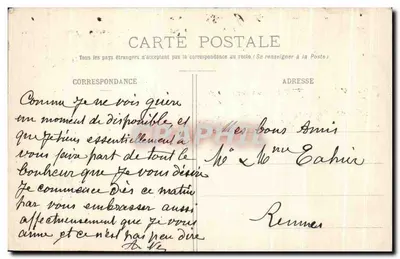 CARTE POSTALE
Tous les pays étrangers n'acceptent pas la correspondance au recto (Se renseigner à la Poste)
CORRESPONDANCE
ADRESSE
Comme je ne vois guère
un moment de disponible, et
que je tiens essentiellement à
vous faire part de tout le
bonheur que je vous désire
je commence dès ce matin
par vous embrasser aussi
affectueusement que je vous
aime et ce n'est pas peu dire
Mes bons Amis
Mr & Mme
Rennes